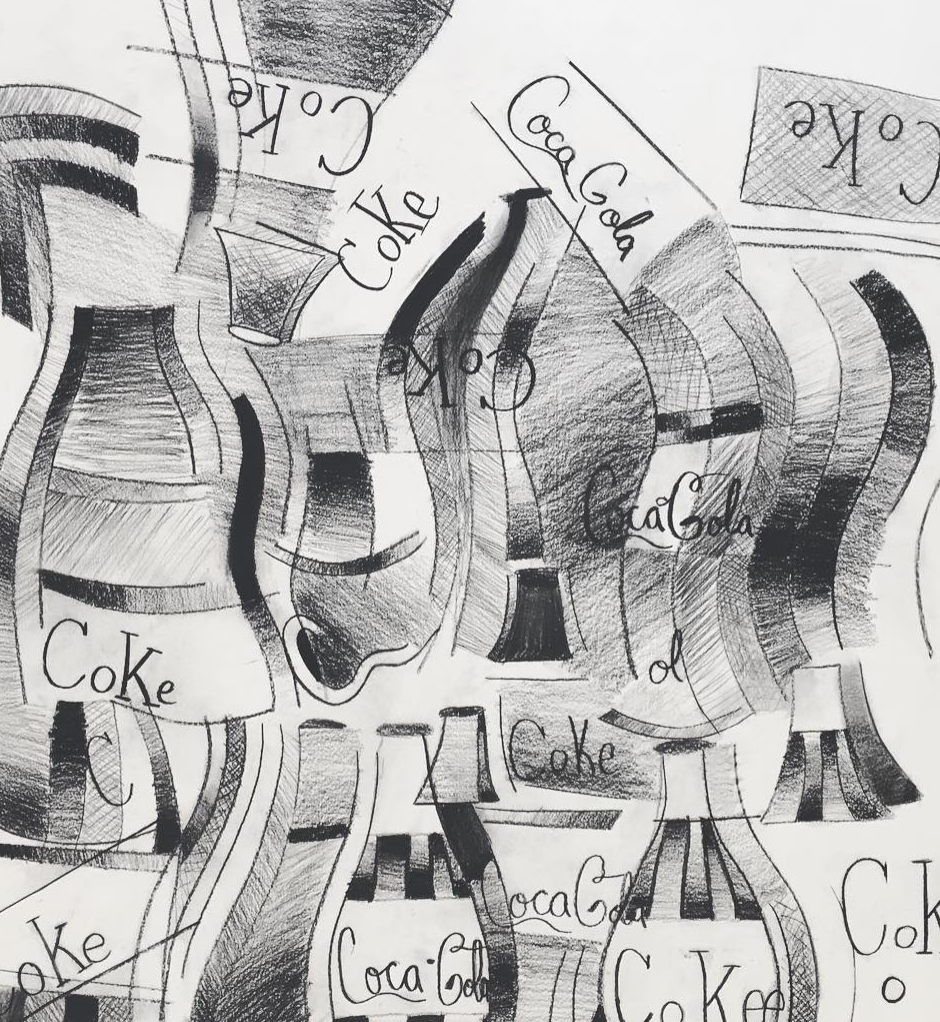 Coke
Coca Cola
Coke
Coke
Coke
Coca Cola
ol
Coke
C
Coke
Coca Cola
oke
Coca-Cola
CoKee
Cok
o